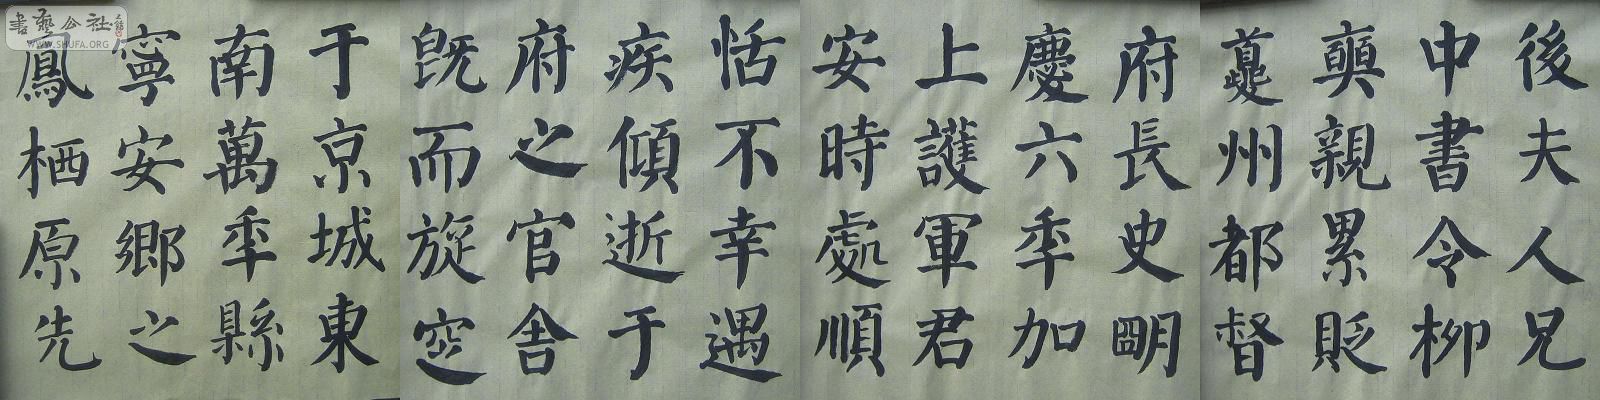 後夫人兄
中書令柳
奭親累貶
夔州都督
府長史朙
慶六秊加
上護軍君
安時處順
恬不幸遇
疾傾逝于
府之官舍
既而旋窆
于京城東
南萬秊縣
寧安鄉之
鳳栖原先
書藝公社
WWW.SHUFA.ORG